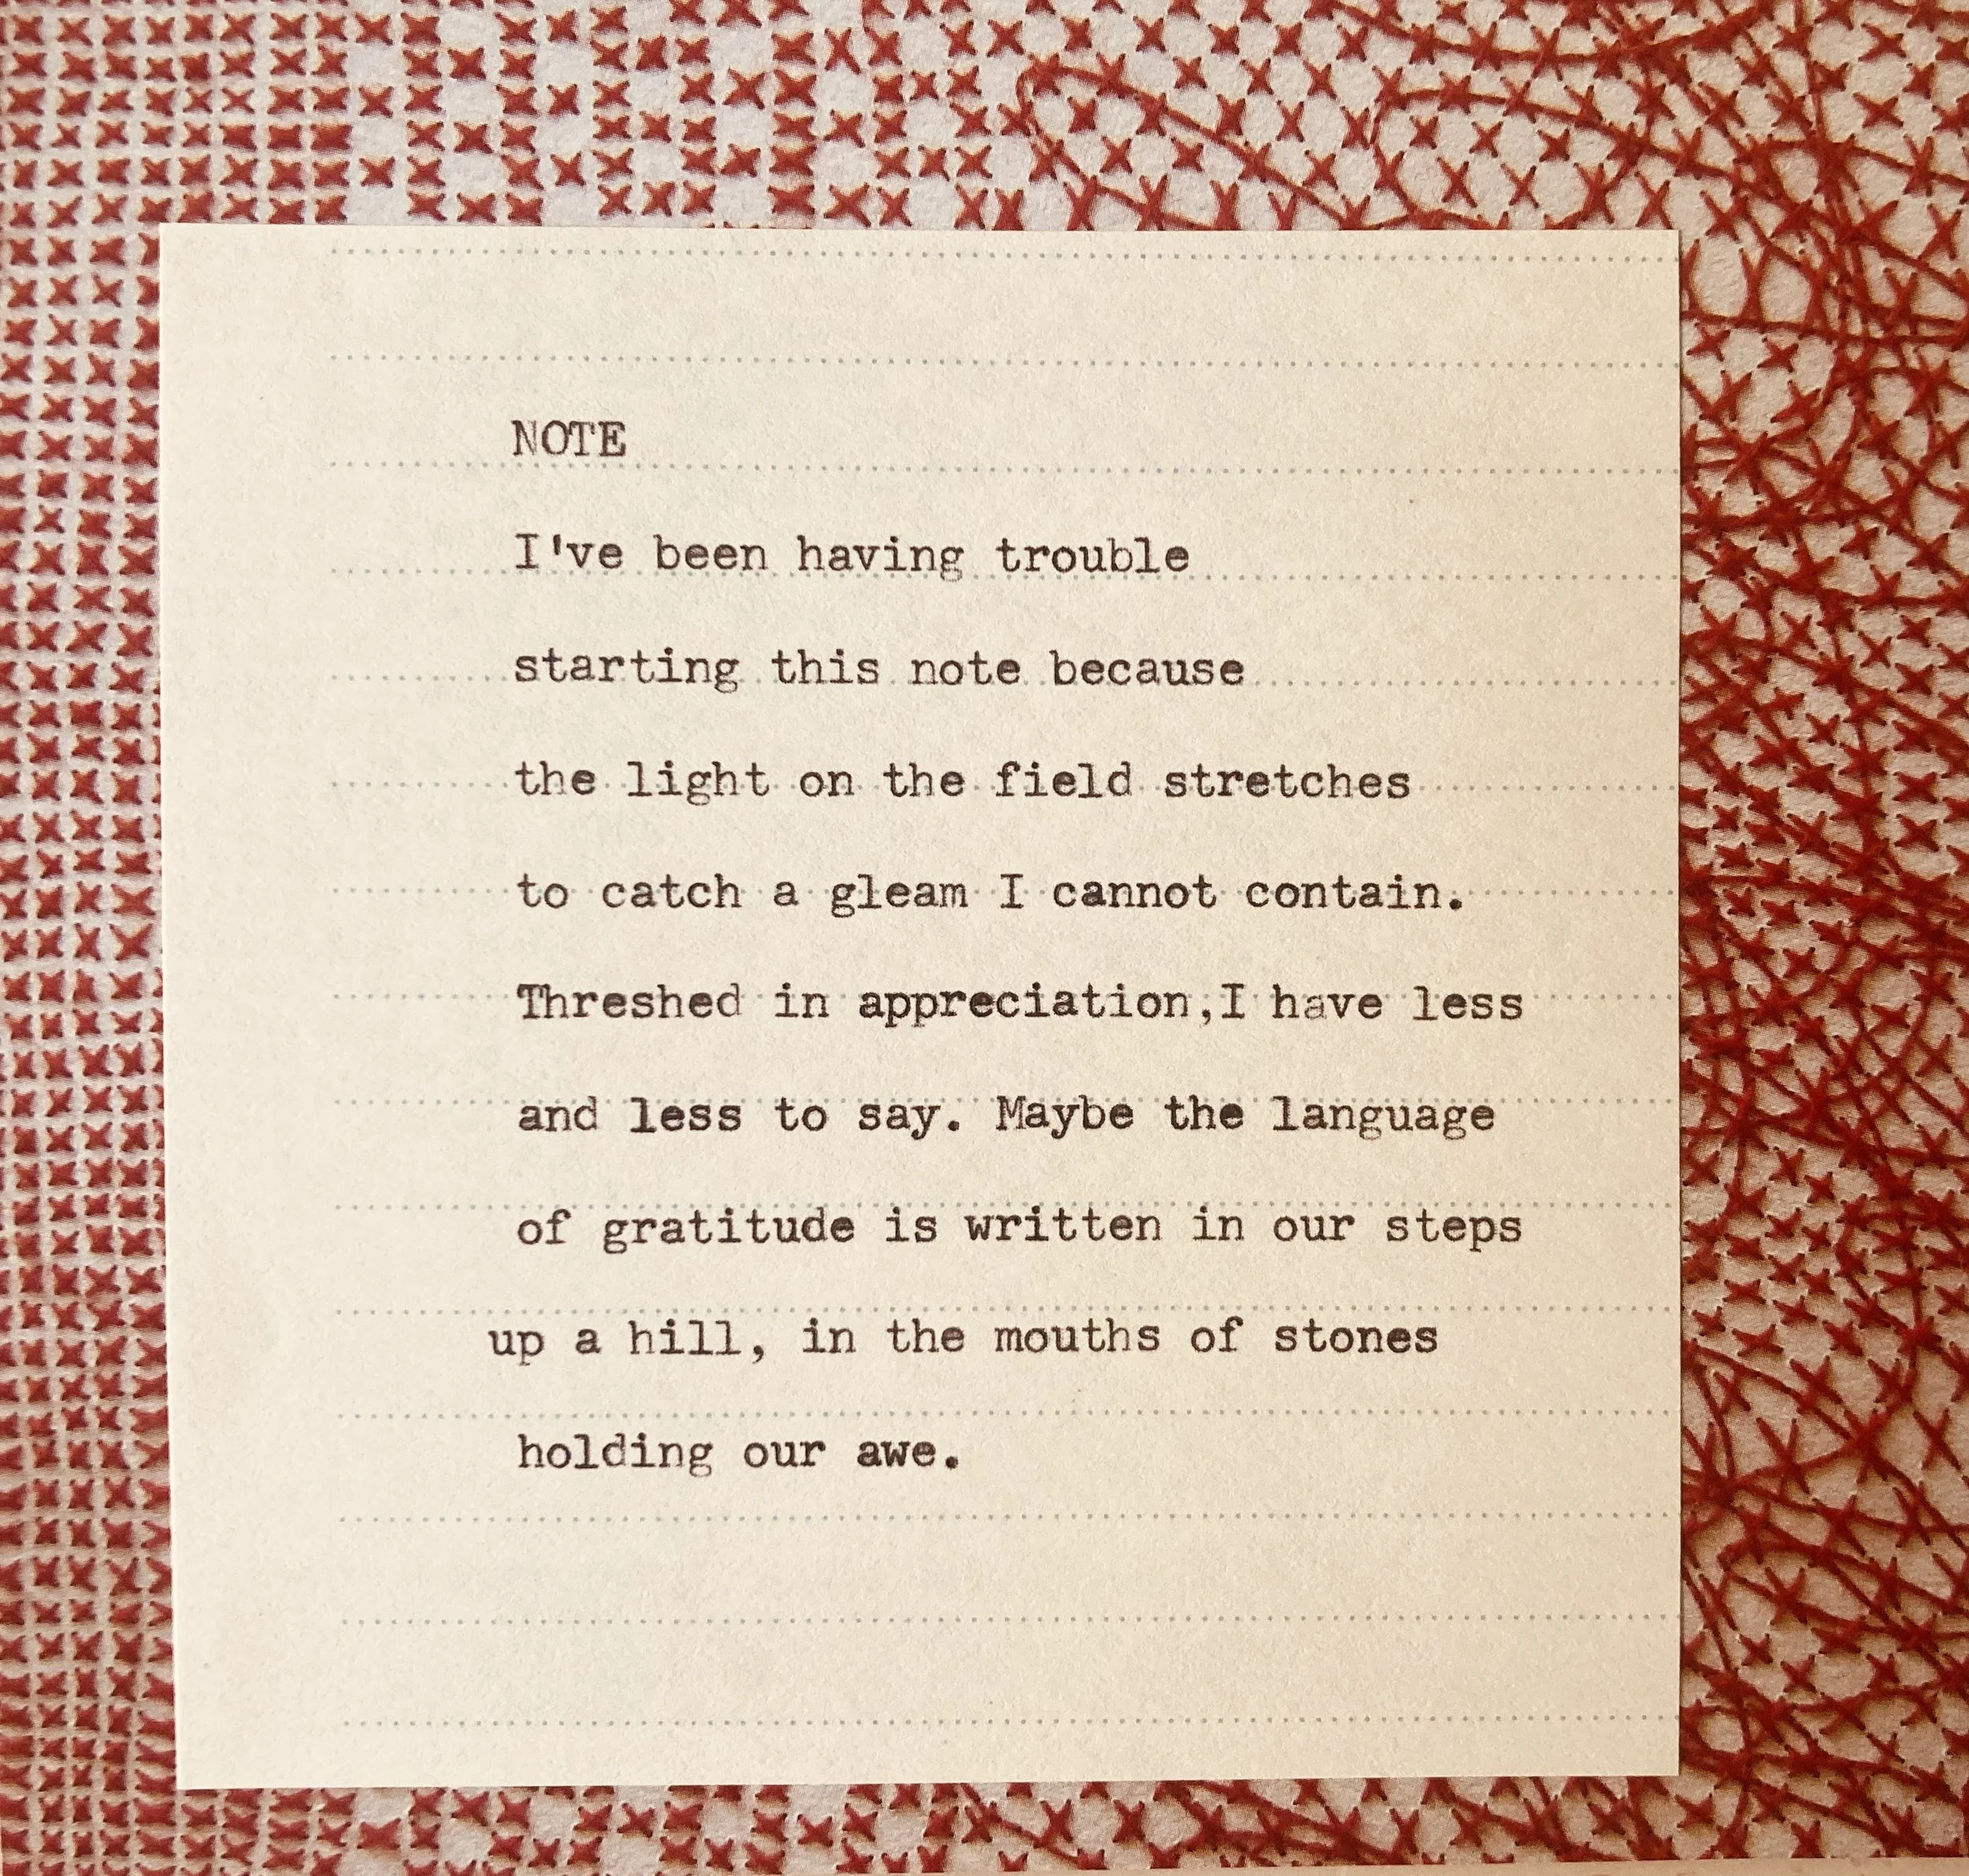 NOTE
I've been having trouble
starting this note because
the light on the field stretches
to catch a gleam I cannot contain.
Threshed in appreciation,I have less
and less to say. Maybe the language
of gratitude is written in our steps
up a hill, in the mouths of stones
holding our awe.